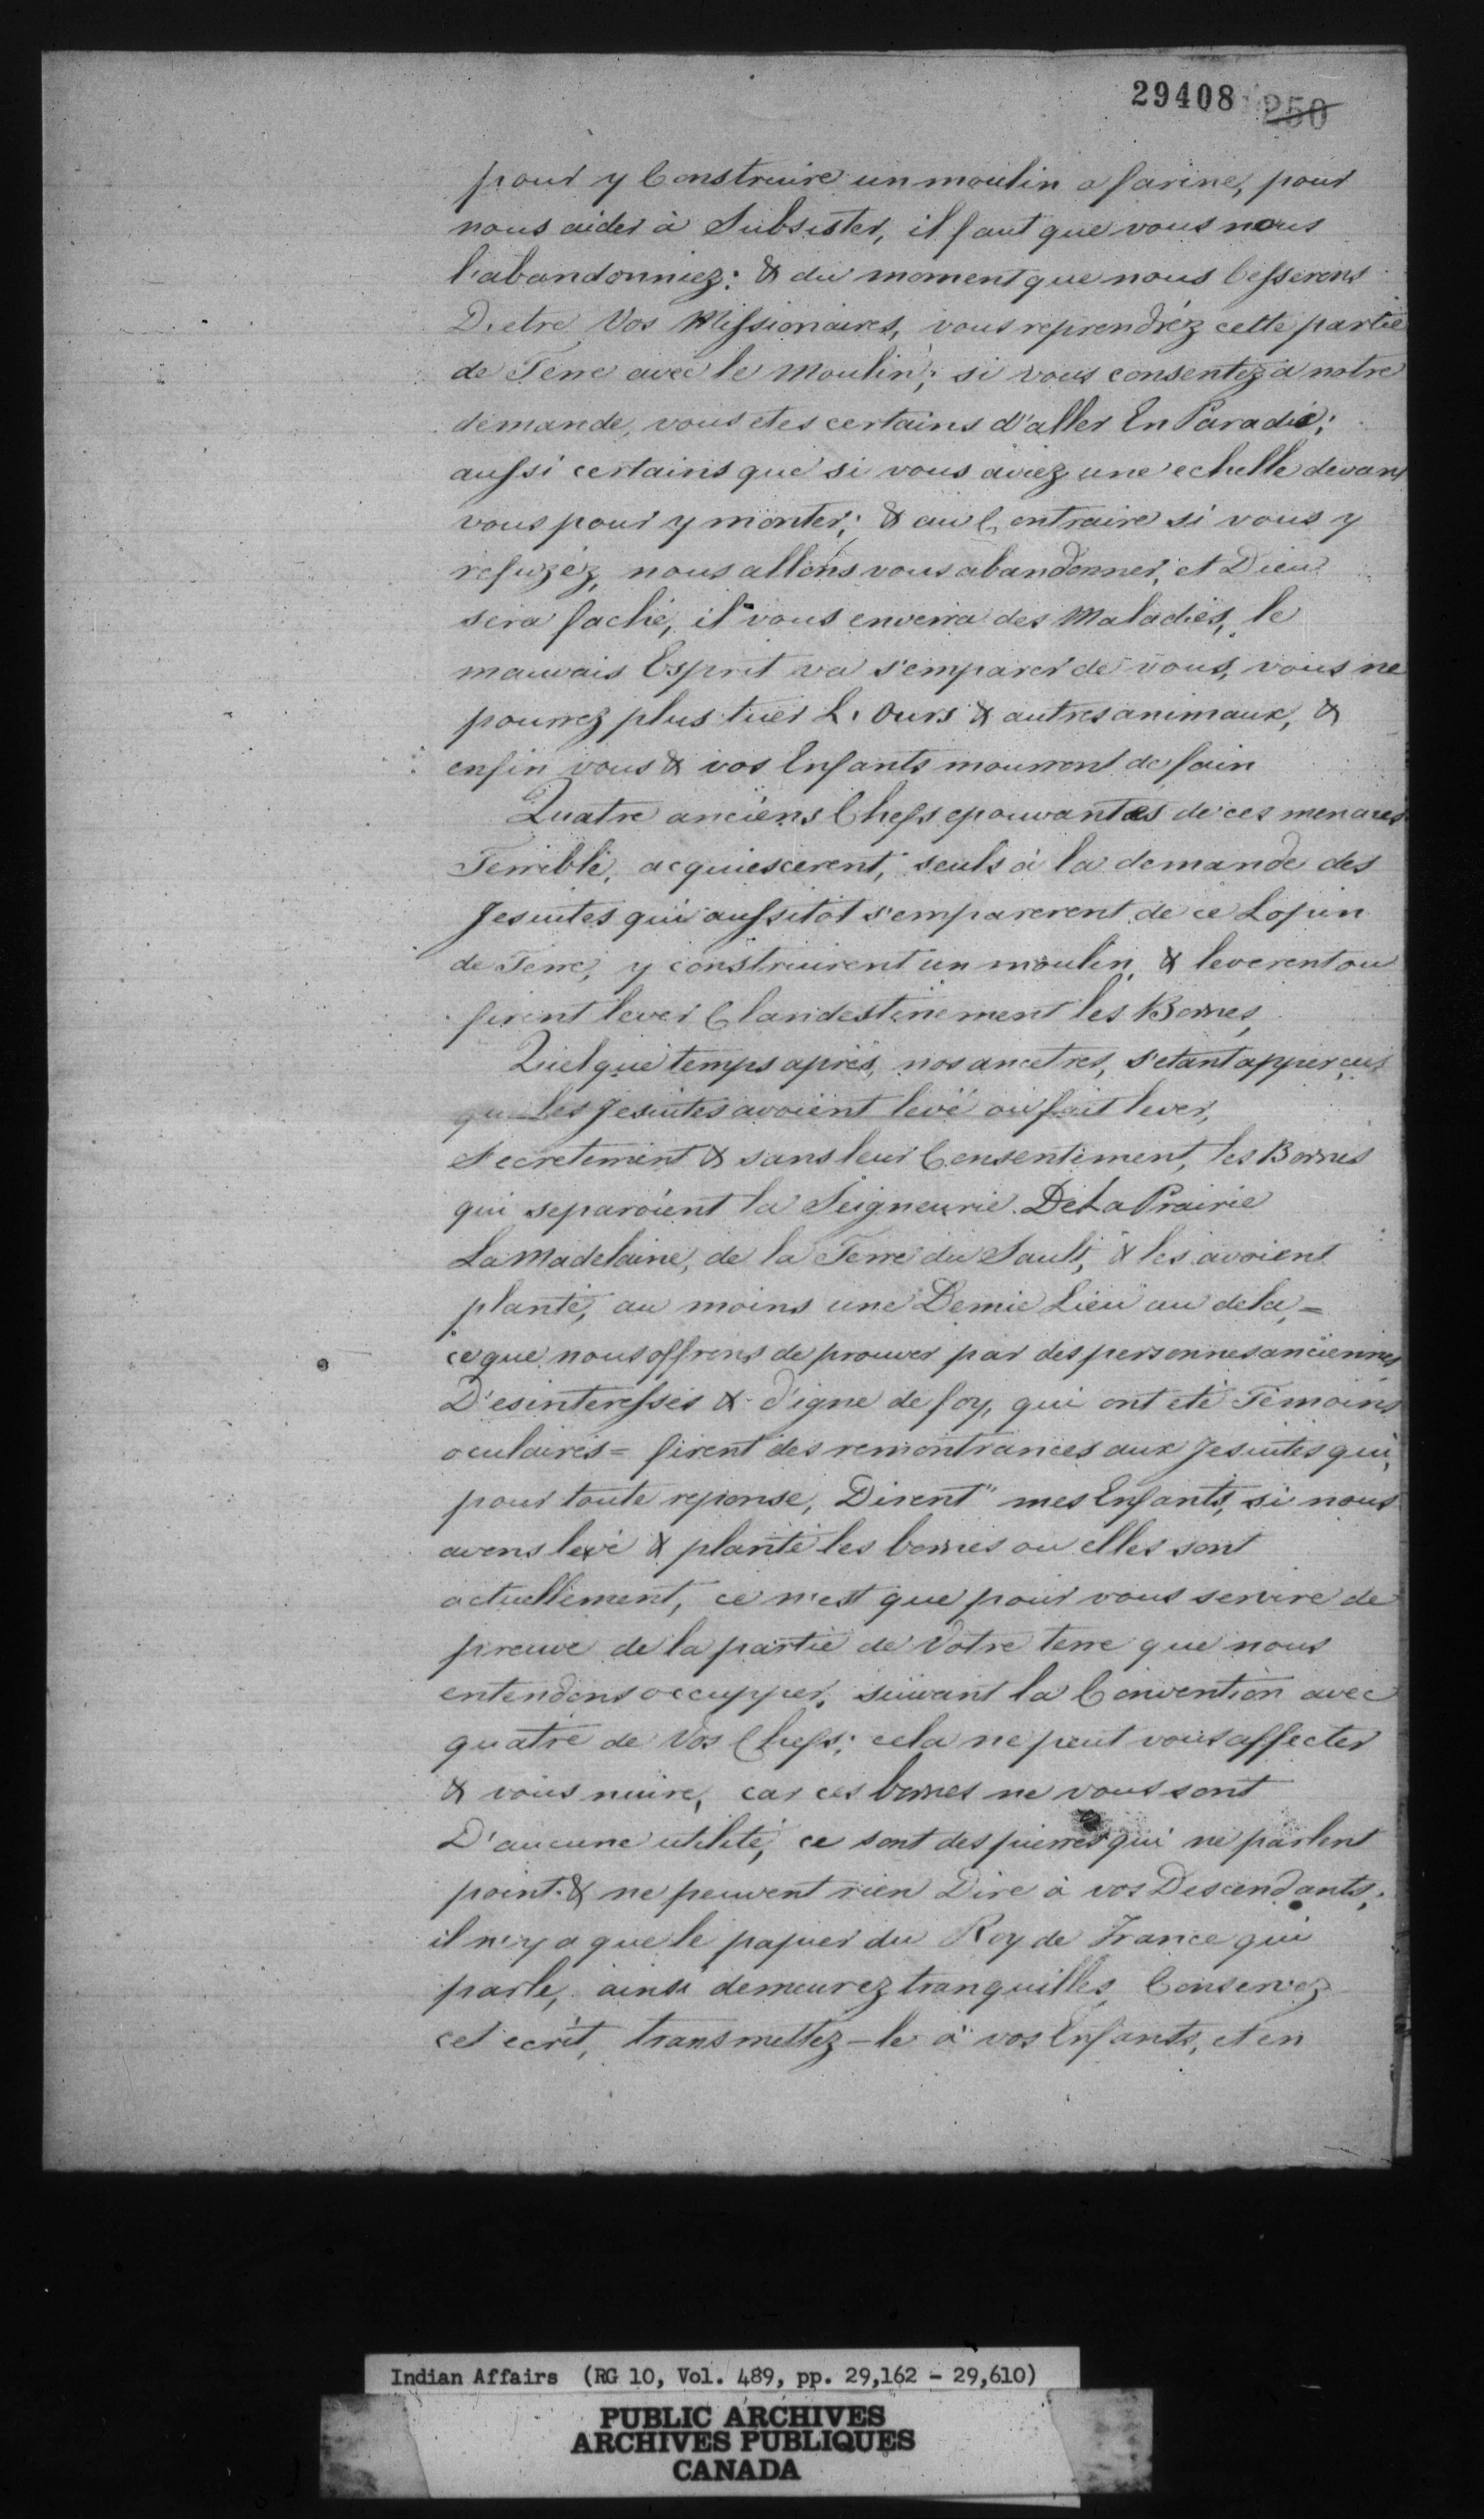 29408 250
pour y Construire un moulin a farine, pour
nous aider à Subsister, il faut que vous nous
l'abandonniez: & du moment que nous Cesserons
D'etre Vos Missionaires, vous reprendréz cette partie
de Terre avec le Moulin; si vous consentez a notre
demande, vous etes certains d'aller En Paradie;
aussi certains que si vous aviez une echelle devant
vous pour y monter; & au Contraire si vous y
refuzéz, nous allons vous abandonner, et Dieu
sera faché, il vous enverra des Maladies, le
mauvais Esprit va s'emparer de vous, vous ne
pourrez plus tuer L'Ours & autres animaux, &
enfin vous & vos Enfants mourront de fain
Quatre anciens Chefs epouvantes de ces menaces
Terrible, acquiescerent, seuls à la demande des
Jesuites qui aussitot s'emparerent de ce Lopin
de Terre, y construirent un moulin, & leverent ou
firent lever Clandestinement les Bornes,
Quelque temps après, nos ancetres, s'etant apperçus
que les Jesuites avoient levé ou fait lever,
Secretement & sans leur Consentement, les Bornes
qui separoient la Seigneurie De La Prairie
La Madelaine, de la Terre du Sault, & les avoient
planté, au moins une Demie Lieu au dela,=
ce que nous offrons de prouver par des personnes anciennes
D'esinteressés & d'igne de foy, qui ont été Témoins
oculaires= firent des remontrances aux Jesuites qui,
pour toute reponse, Dirent" mes Enfants, si nous
avons levé & planté les bornes ou elles sont
actuellement, ce n'est que pour vous servire de
preuve de la partie de Votre terre que nous
entendons occupper, suivant la Convention avec
quatre de Vos Chefs; cela ne peut vous affecter
& vous nuire, car ces bornes ne vous sont
D'aucune utilité, ce sont des pierres qui ne parlent
point & ne peuvent rien Dire à vos Descendants,
il n'y a que le papier du Roy de France qui
parle, ainsi demeurez tranquilles, Conservez
cet ecrit, transmettez-le à vos Enfants, et en
Indian Affairs (RG 10, Vol. 489, pp. 29,162 - 29,610)
PUBLIC ARCHIVES
ARCHIVES PUBLIQUES
CANADA